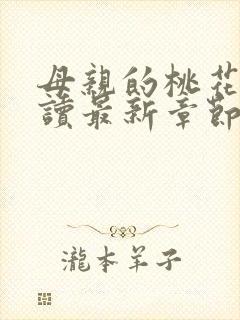 母親的桃花
讀最新章節
瀧本羊子